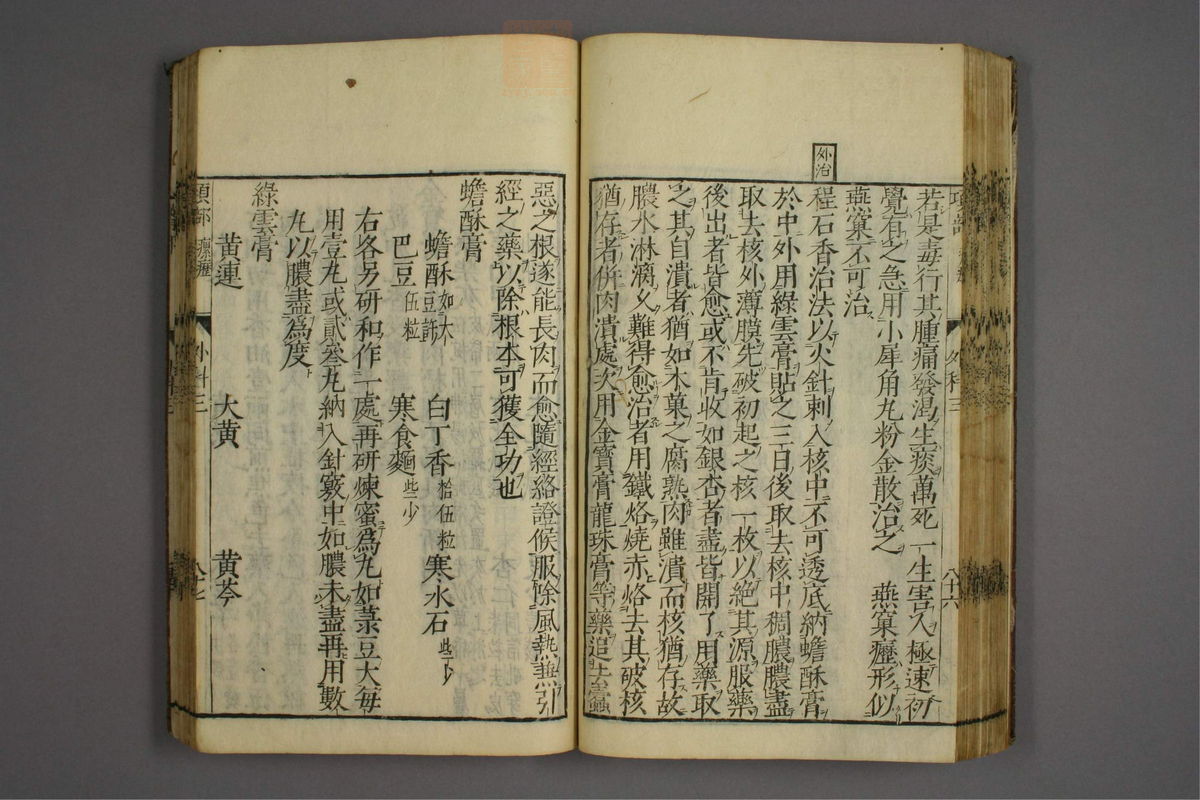 若是毒行其腫痛發渴生痰萬死一生害入極速初
覺有之急用小犀角丸粉金散治之 燕窠癧形似
燕窠不可治
外治
程石香治法以火針刺入核中不可透底納蟾酥膏
於中外用綠雲膏貼之三日後取去核中稠膿膿盡
取去核外薄膜先破初起之核一枚以絕其源服藥
後出者皆愈或不肯收如銀杏者盡皆開了用藥取
之其自潰者猶如木菓之腐熟肉雖潰而核猶存故
膿水淋漓久難得愈治者用鐵烙燒赤烙去其破核
猶存者併肉潰處次用金寶膏龍珠膏等藥追生蠹
惡之根遂能長肉而愈隨經絡證候服除風熱無引
經之藥以除根本可獲全功也
蟾酥膏
蟾酥如大豆許 白丁香拾伍粒 寒水石些少
巴豆伍粒 寒食麵些少
右各另研和作一處再研煉蜜為丸如菉豆大每
用壹丸或貳叁丸納入針竅中如膿未盡再用數
丸以膿盡為度
綠雲膏
黃連 大黃 黃芩
項部 瘰癧 外科三 八十七
項部 外科三 八十六